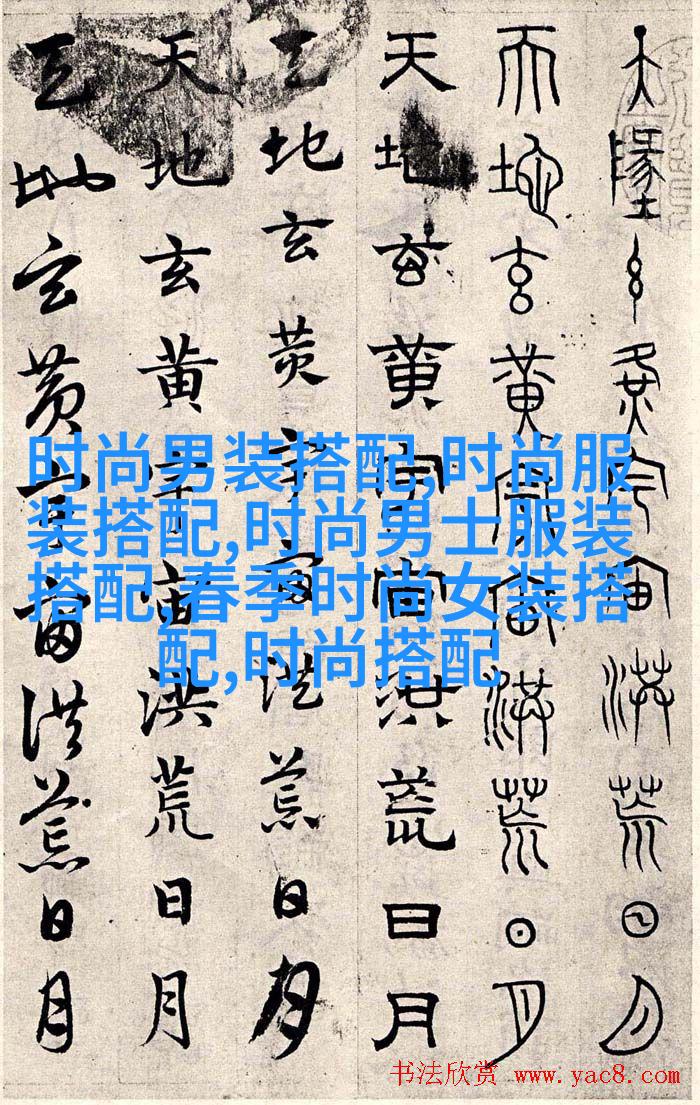 天地玄黄宇宙洪荒日月
天地玄黄宇宙洪荒日月
天地玄黄宇宙洪荒日月
天地玄黄宇宙洪荒日月
天地玄黄宇宙洪荒日月
天地玄黄宇宙洪荒日月
时尚男装搭配,时尚服
装搭配,时尚男士服装
搭配,春季时尚女装搭
配,时尚搭配
书法欣赏 www.yac8.com